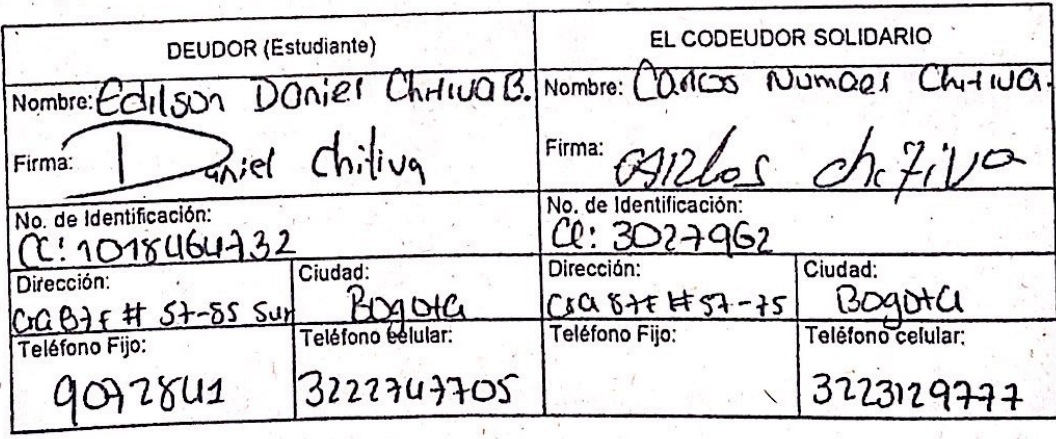 DEUDOR (Estudiante)
EL CODEUDOR SOLIDARIO
Nombre: Edilson Daniel Chitiva B.
Nombre: Carlos Numael Chitiva.
Firma: Daniel Chitiva
Firma: Carlos Chitiva
No. de Identificación:
CC: 1018464732
No. de Identificación:
CC: 3027962
Dirección:
Cra 87F # 57-85 Sur
Ciudad:
Bogota
Dirección:
Cra 87F # 57-75
Ciudad:
Bogota
Teléfono Fijo:
9072841
Teléfono celular:
3222747705
Teléfono Fijo:
Teléfono celular:
3223129777